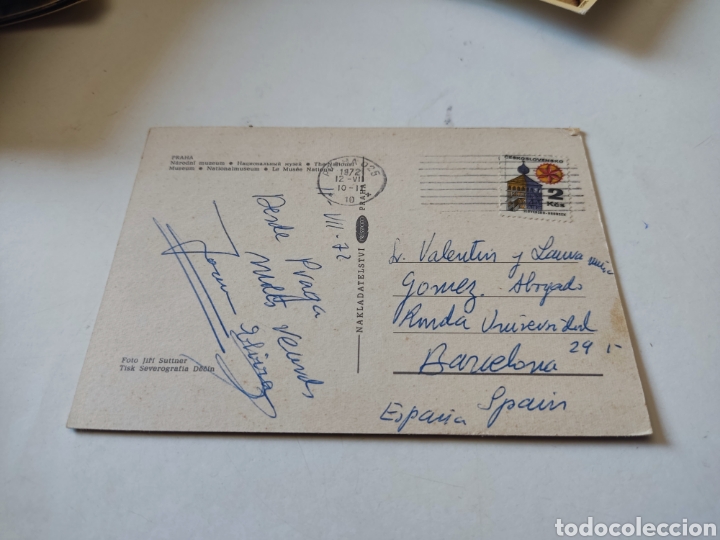 PRAHA
Národní museum ● Национальный музей ● The National
Museum ● Nationalmuseum ● Le Musée National
PRAHA 025
1972
12-VII
10-11
10
ČESKOSLOVENSKO
2
Kčs
27-VII
Desde Praga
NAKLADATELSTVÍ
PRAHA
Foto Jiří Suttner
Tisk Severografia Děčín
Sr. Valentin y Laura
Gomez. Abogado
Ronda Universidad
29
Barcelona
España Spain
todocoleccion